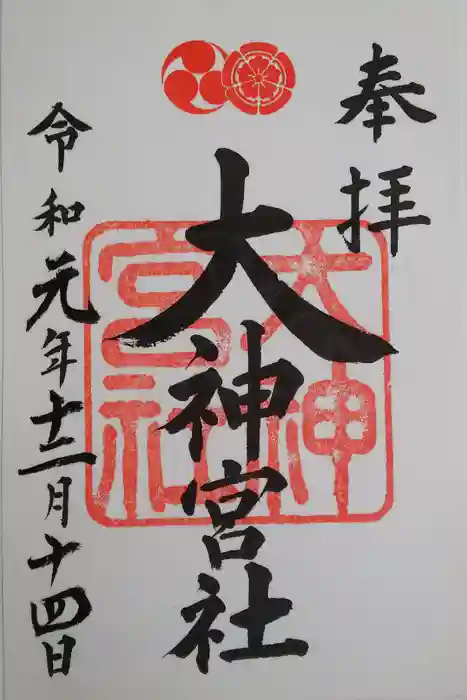 奉拝
大神宮社
大神宮社
令和元年十二月十四日